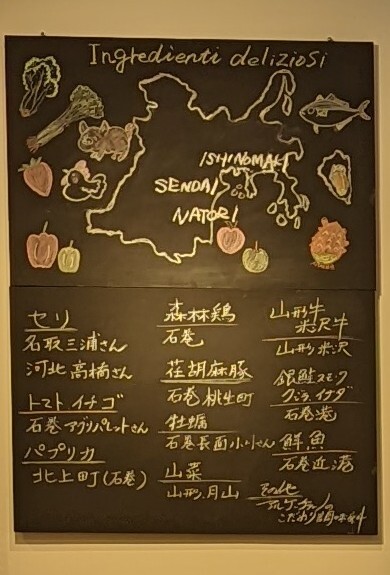 Ingredienti deliziosi
ISHINOMAKI
SENDAI
NATORI
セリ
名取 三浦さん
河北 高橋さん
トマト イチゴ
石巻 アグリパレットさん
パプリカ
北上町(石巻)
森林鶏
石巻
荏胡麻豚
石巻 桃生町
牡蠣
石巻 長面 小川さん
山菜
山形、月山
山形牛
米沢牛
山形 米沢
銀鮭スモーク
石巻港
鮮魚
石巻近港
その他
アルケッチァーノの
こだわり調味料